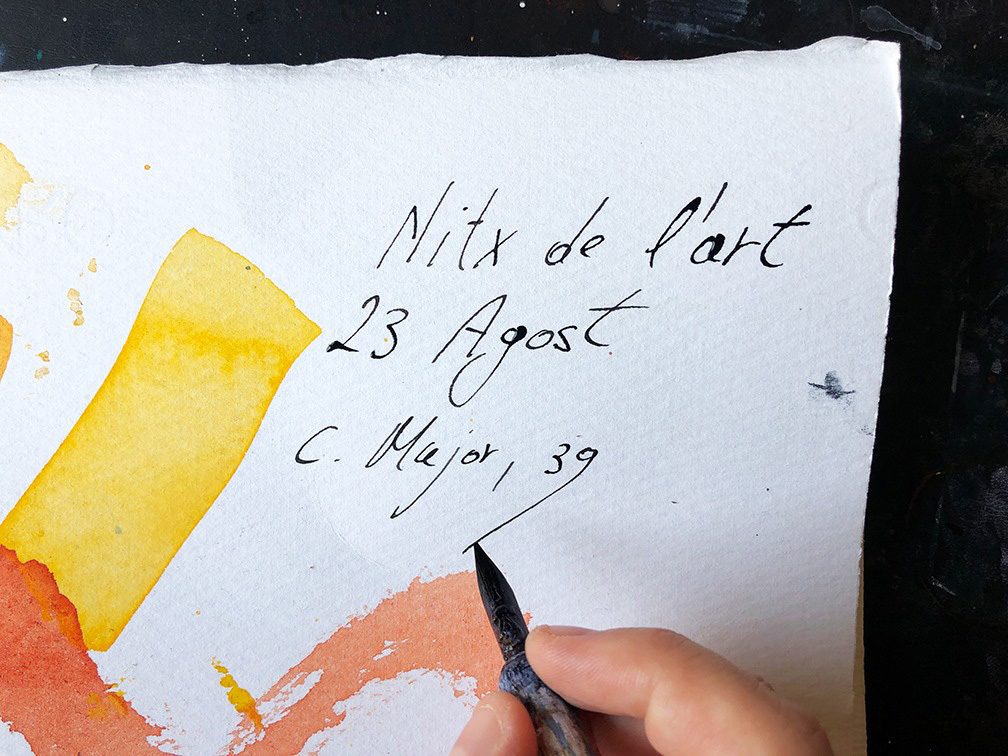 Nitx de l'art
23 Agost
C. Major, 39